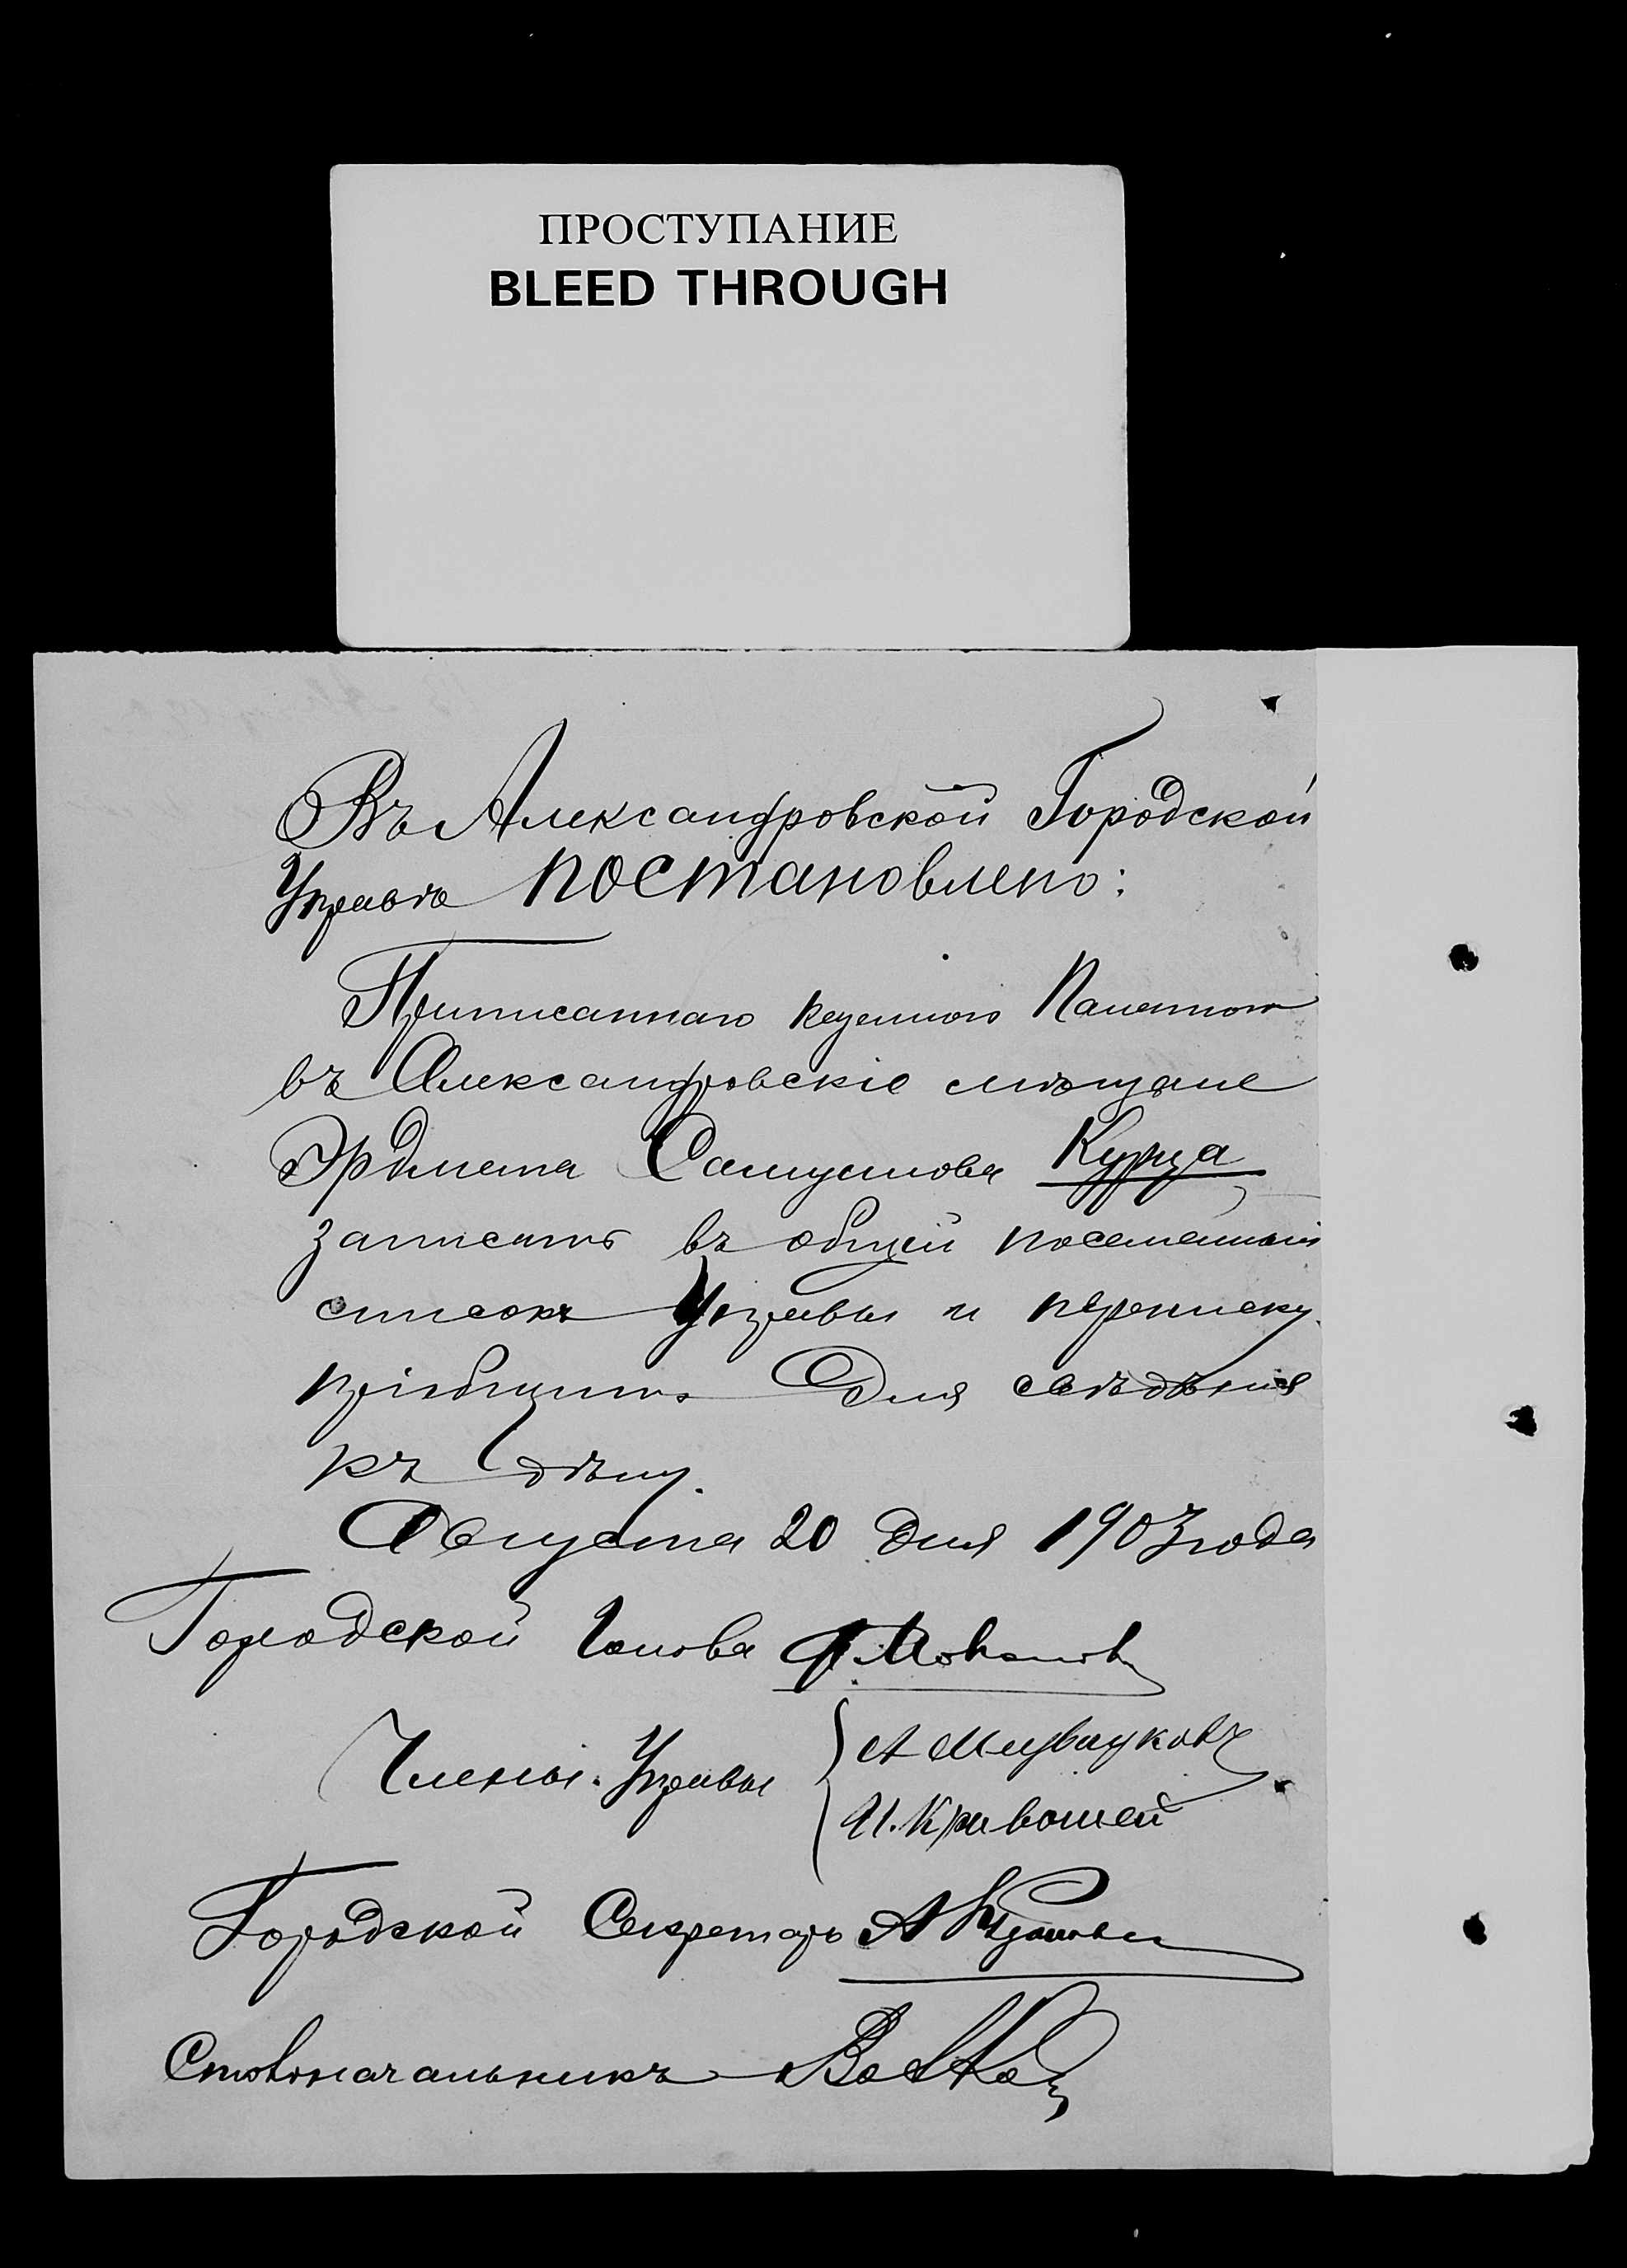 ПРОСТУПАНИЕ
BLEED THROUGH
Въ Александровской Городской
Управѣ постановлено:
Приписаннаго Казенною Палатою
въ Александровскіе мѣщане
Эрдмана Самуилова Курца
записать въ общій посемейный
списокъ Управы и переписку
пріобщить для свѣдѣнія
къ дѣлу.
Августа 20 дня 1903 года
Городской Голова Ф. Мовчанов
Члены Управы
И. Кривошей
Городской Секретарь А
Столоначальникъ